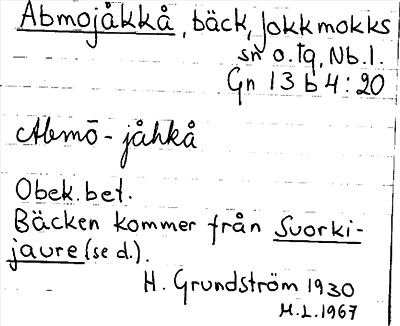 Abmojåkkå, bäck, Jokkmokks
sn o. tg, Nb. l.
Gn 13 b 4:20
Abmō-jåhkå
Obek. bet.
Bäcken kommer från Suorki-
jaure (se d.).
H. Grundström 1930
H.L. 1967